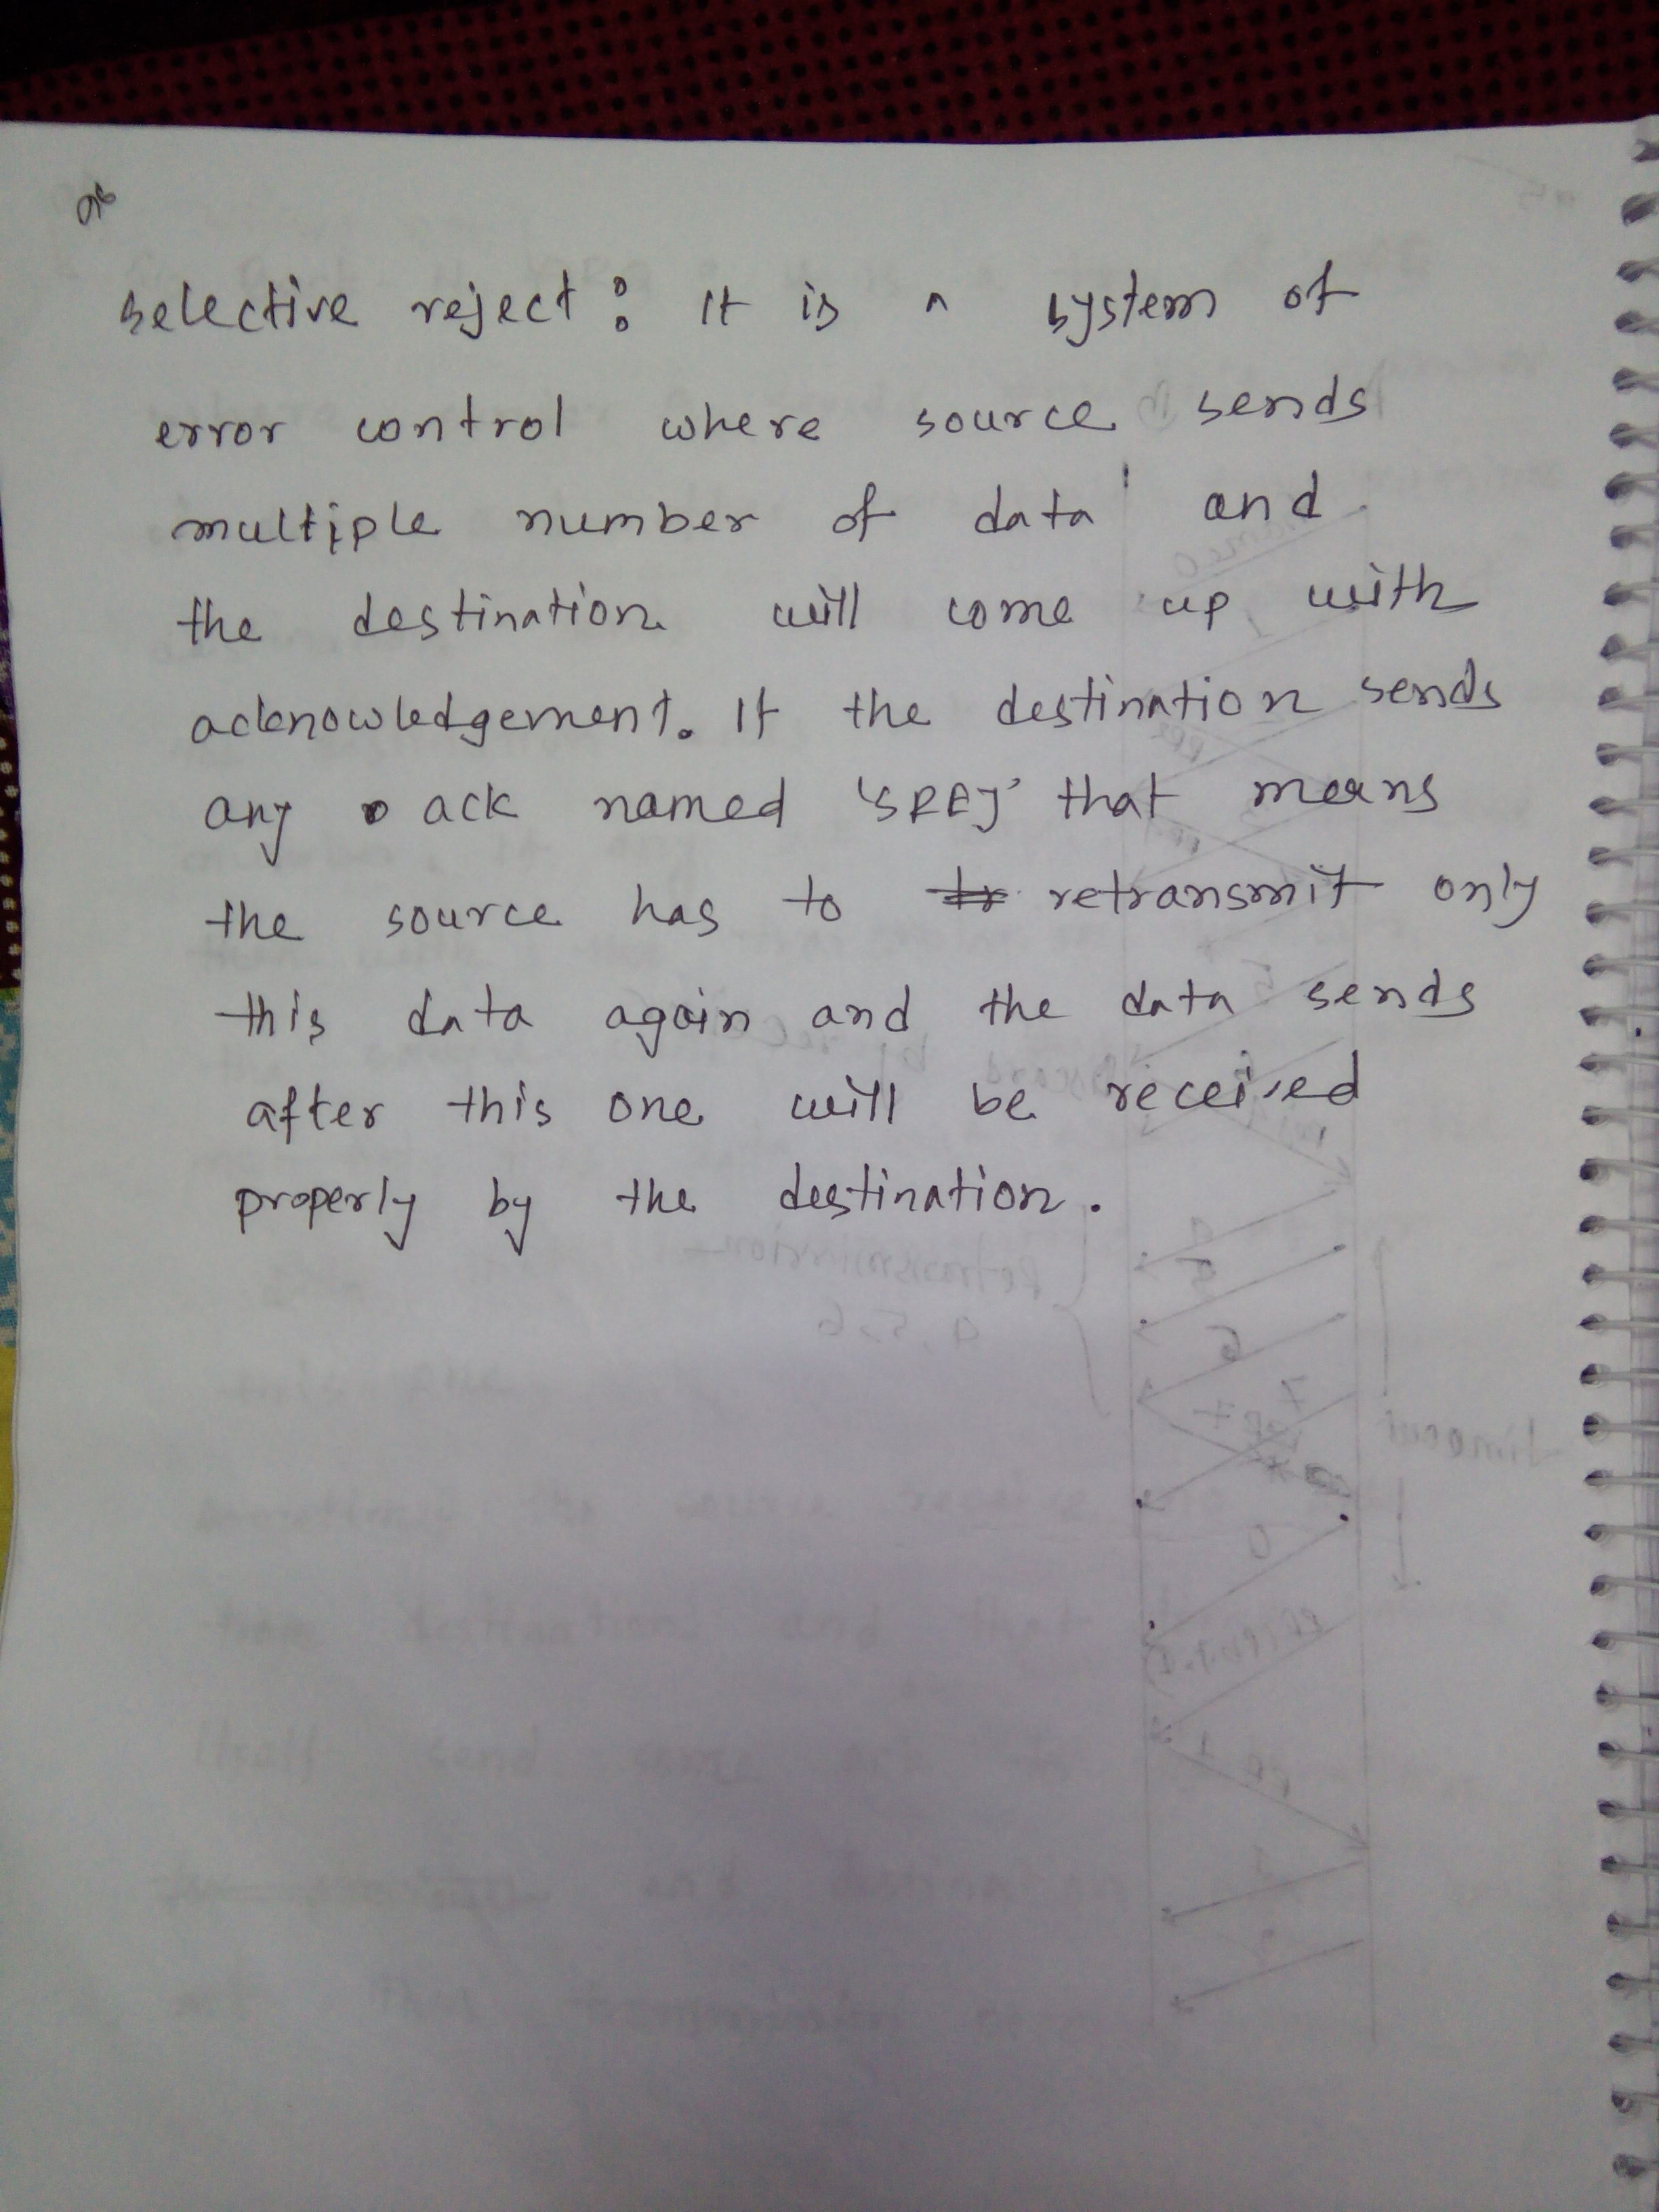 06
selective reject : It is a system of
error control where source sends
multiple number of data and
the destination will come up with
acknowledgement. If the destination sends
any ack named 'SREJ' that means
the source has to retransmit only
this data again and the data sends
after this one will be received
properly by the destination.